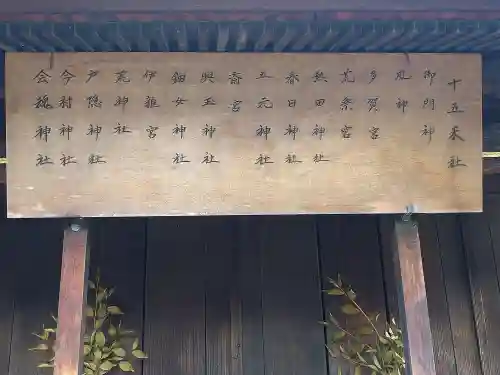 十五末社
御門神
風神
多賀宮
荒祭宮
熱田神社
春日神社
五元神社
宮
興玉神社
鈿女神社
伊雑宮
荒神社
戸隠神社
今村神社
神社